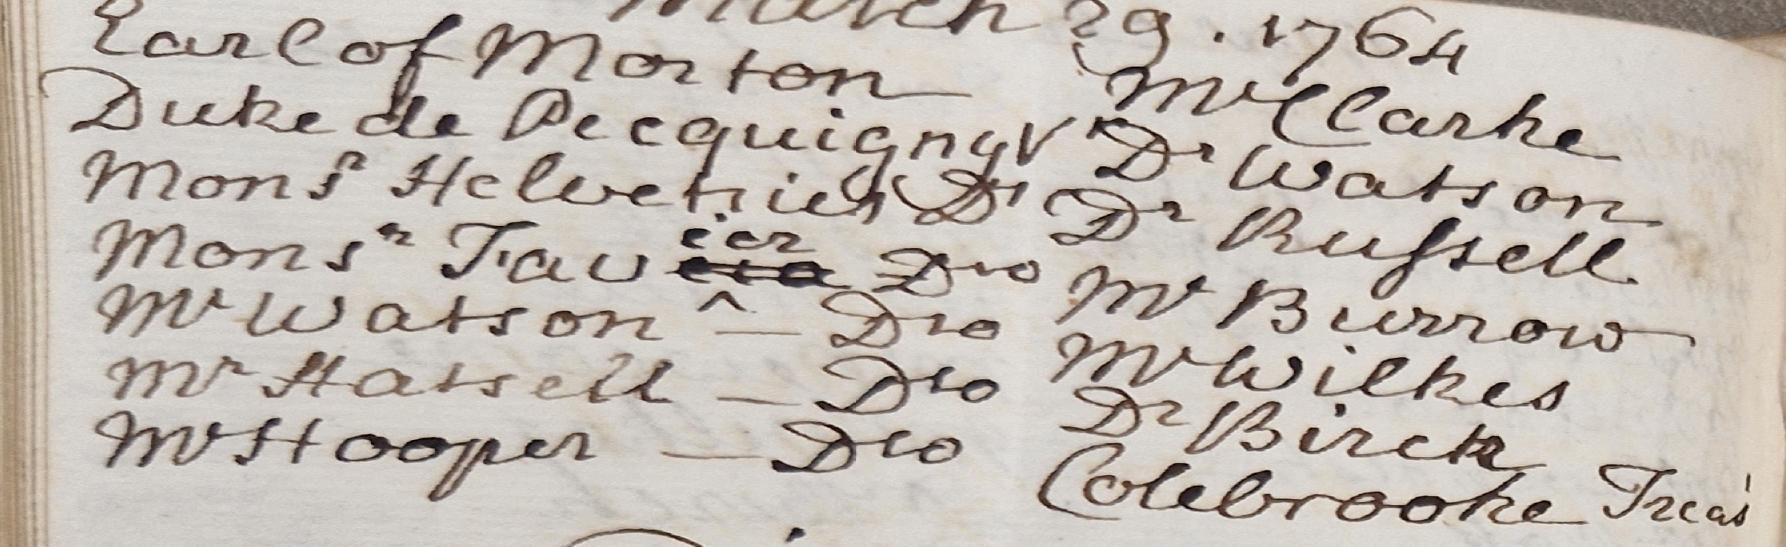 March 29. 1764
Earl of Morton
Duke de Pecquigny Vr
Monsr Helvetius Dr
Monsr Favier Dto
Mr Watson — Dto
Mr Hatsell — Dto
Mr Hooper — Dto
Mr Clarke
Dr Watson
Dr Russell
Mr Burrow
Mr Wilkes
Dr Birch
Colebrooke Treas